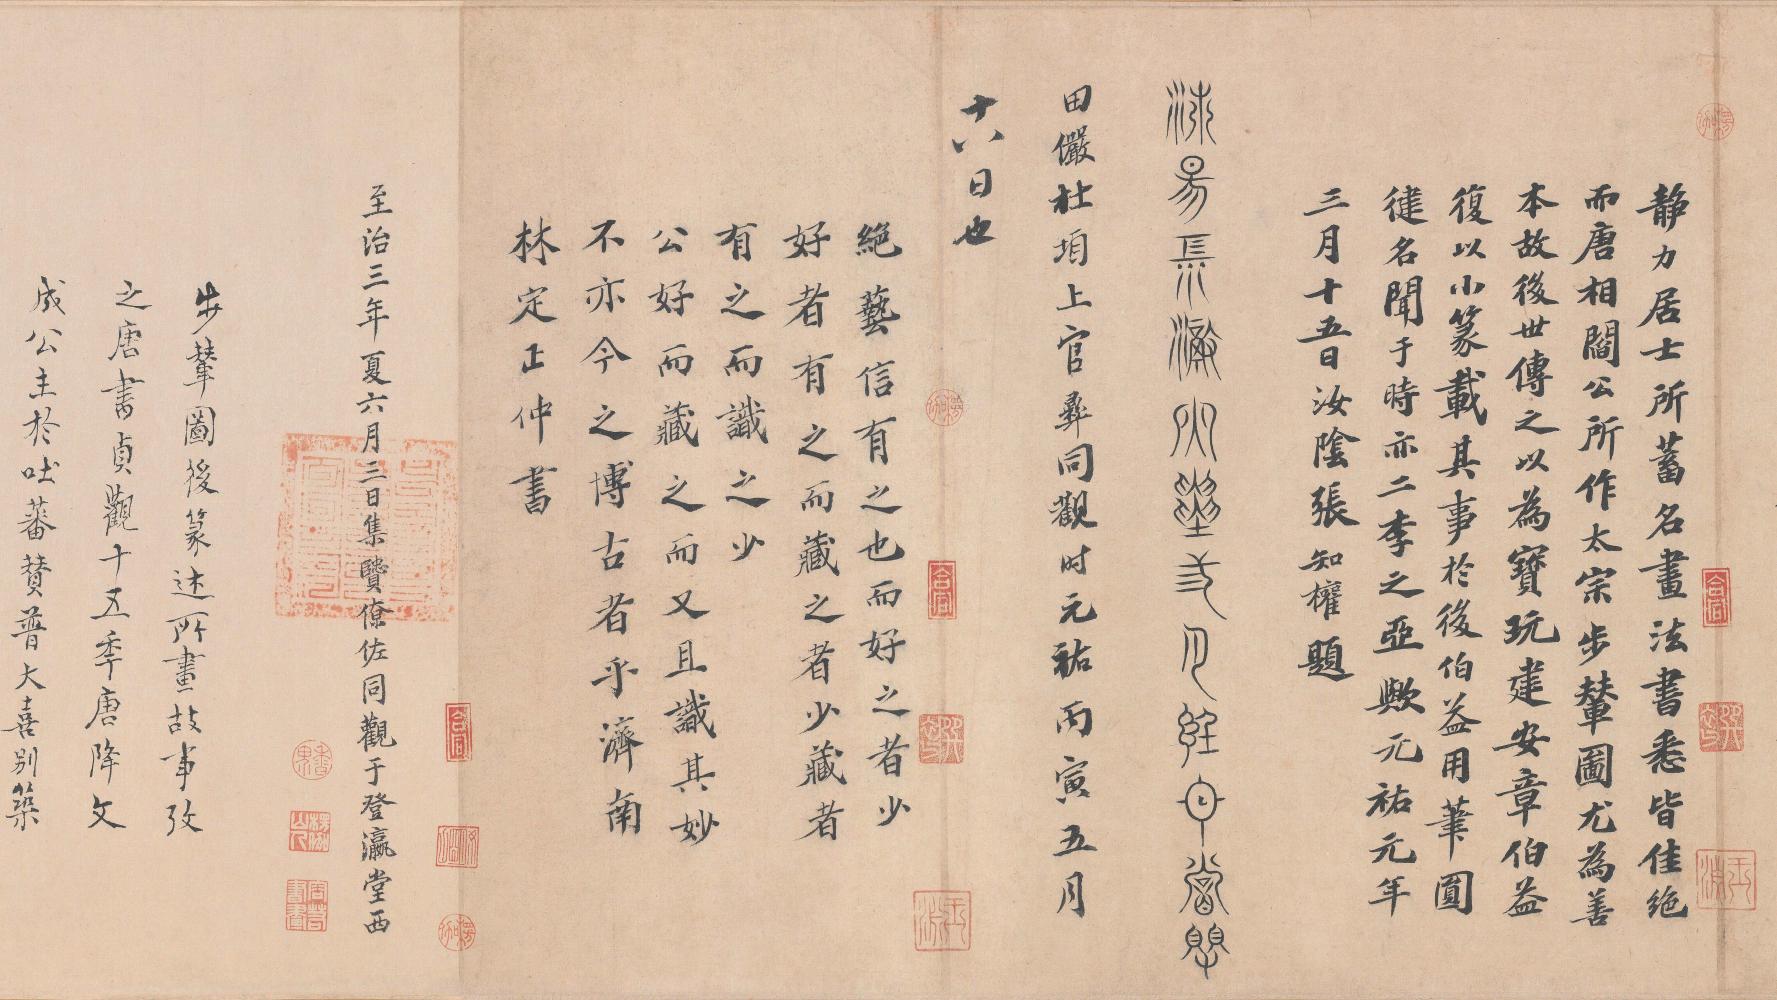 靜力居士所蓄名畫法書悉皆佳絶
而唐相閻公所作太宗步輦圖尤為善
本故後世傳之以為寶玩建安章伯益
復以小篆載其事於後伯益用筆圓
健名聞于時亦二李之亞歟元祐元年
三月十五日汝陰張知權題
田儼杜垍上官彝同觀时元祐丙寅五月
十八日也
絶藝信有之也而好之者少
好者有之而藏之者少藏者
有之而識之少
公好而藏之而又且識其妙
不亦今之博古者乎濟南
林定正仲書
至治三年夏六月三日集賢僚佐同觀于登瀛堂西
步輦圖後篆述所畫故事攷
之唐書貞觀十五季唐降文
成公主於吐蕃赞普大喜别築